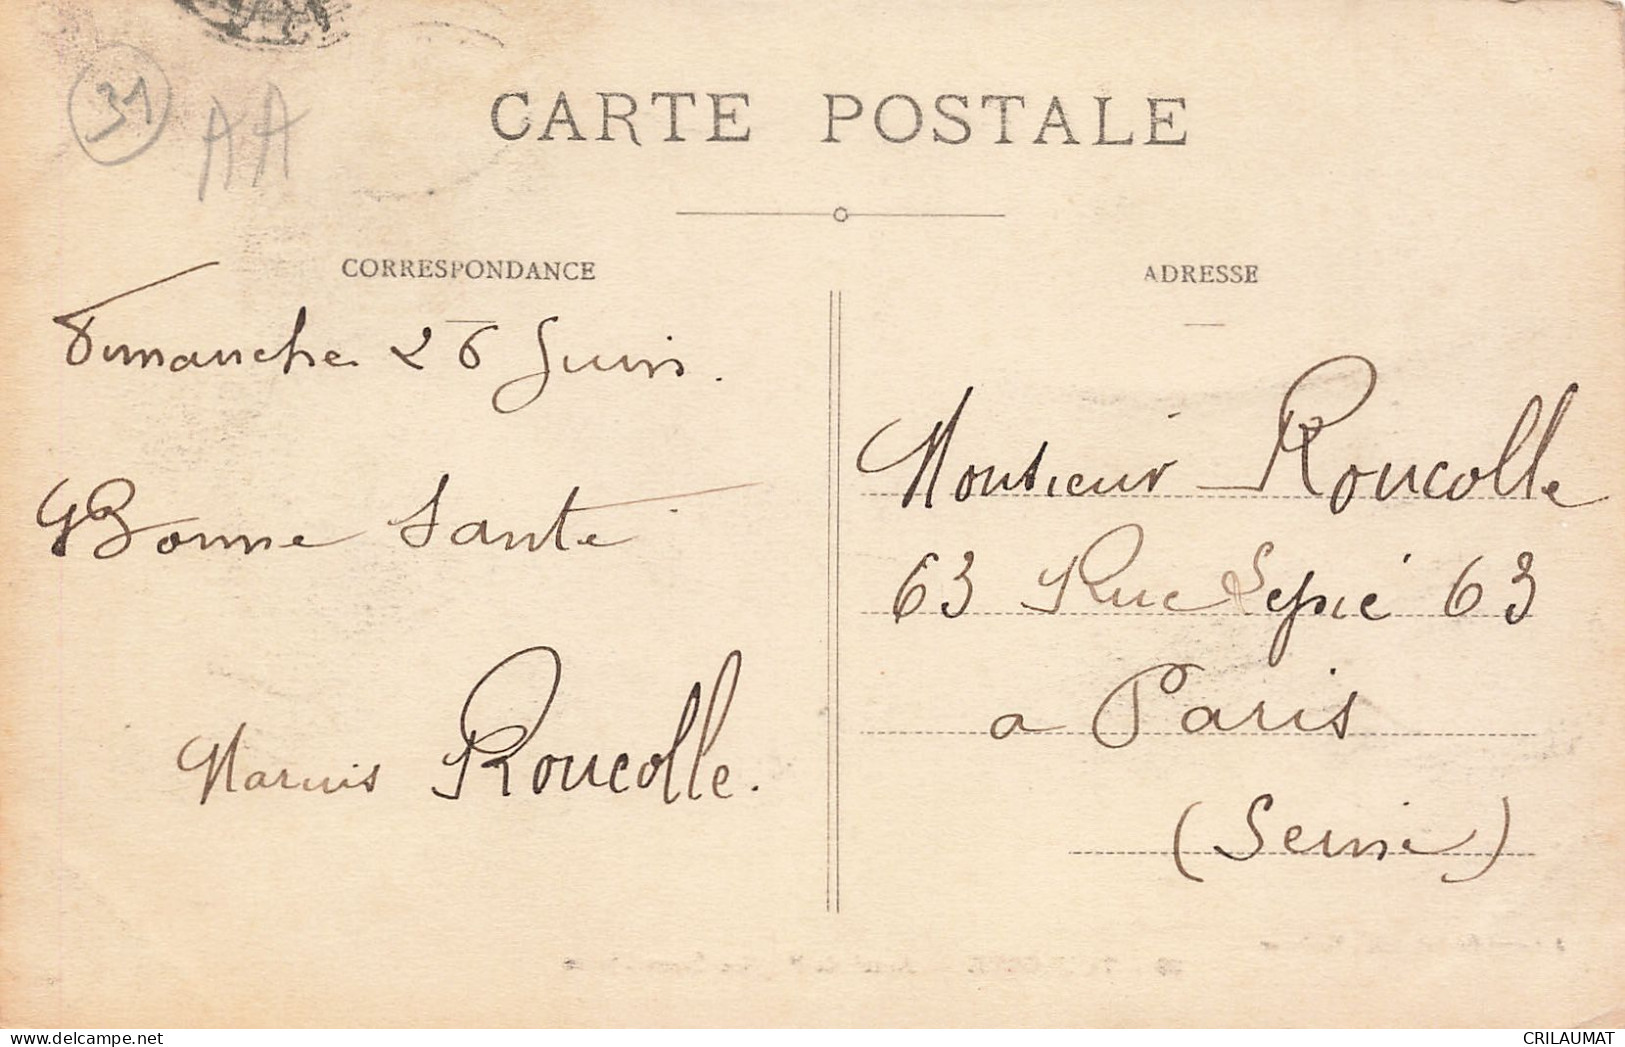 31
AA
CARTE POSTALE
CORRESPONDANCE
Dimanche 26 Juin.
Bonne Santé
Marius Roucolle.
ADRESSE
Monsieur Roucolle
63 Rue Lepic 63
a Paris
(Seine)
CRILAUMAT